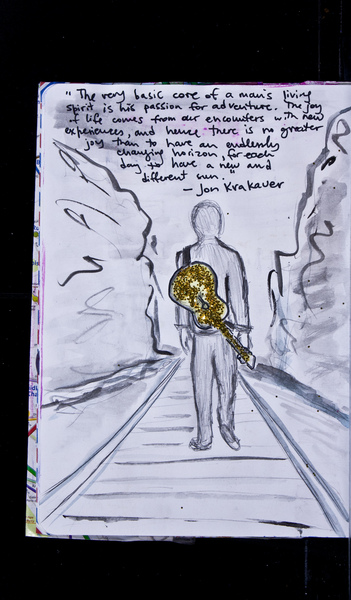 "The very basic core of a man's living
spirit is his passion for adventure. The joy
of life comes from our encounters with new
experiences, and hence there is no greater
joy than to have an endlessly
changing horizon, for each
day to have a new and
different sun."
- Jon Krakauer